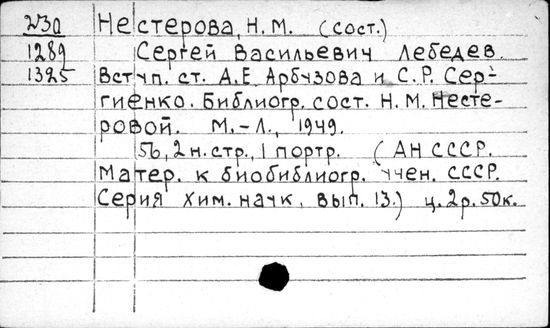 23а Нестерова, Н.М. (сост.)
1289 Сергей Васильевич Лебедев
1325 Вступ. ст. А.Е. Арбузова и С.Р. Сер-
гиенко. Библиогр. сост. Н.М. Несте-
ровой. М.-Л., 1949.
56, 2 н. стр., 1 портр. (АН СССР.
Матер. к биобиблиогр. учен. СССР.
Серия хим. наук, вып. 13.) ц. 2р. 50к.